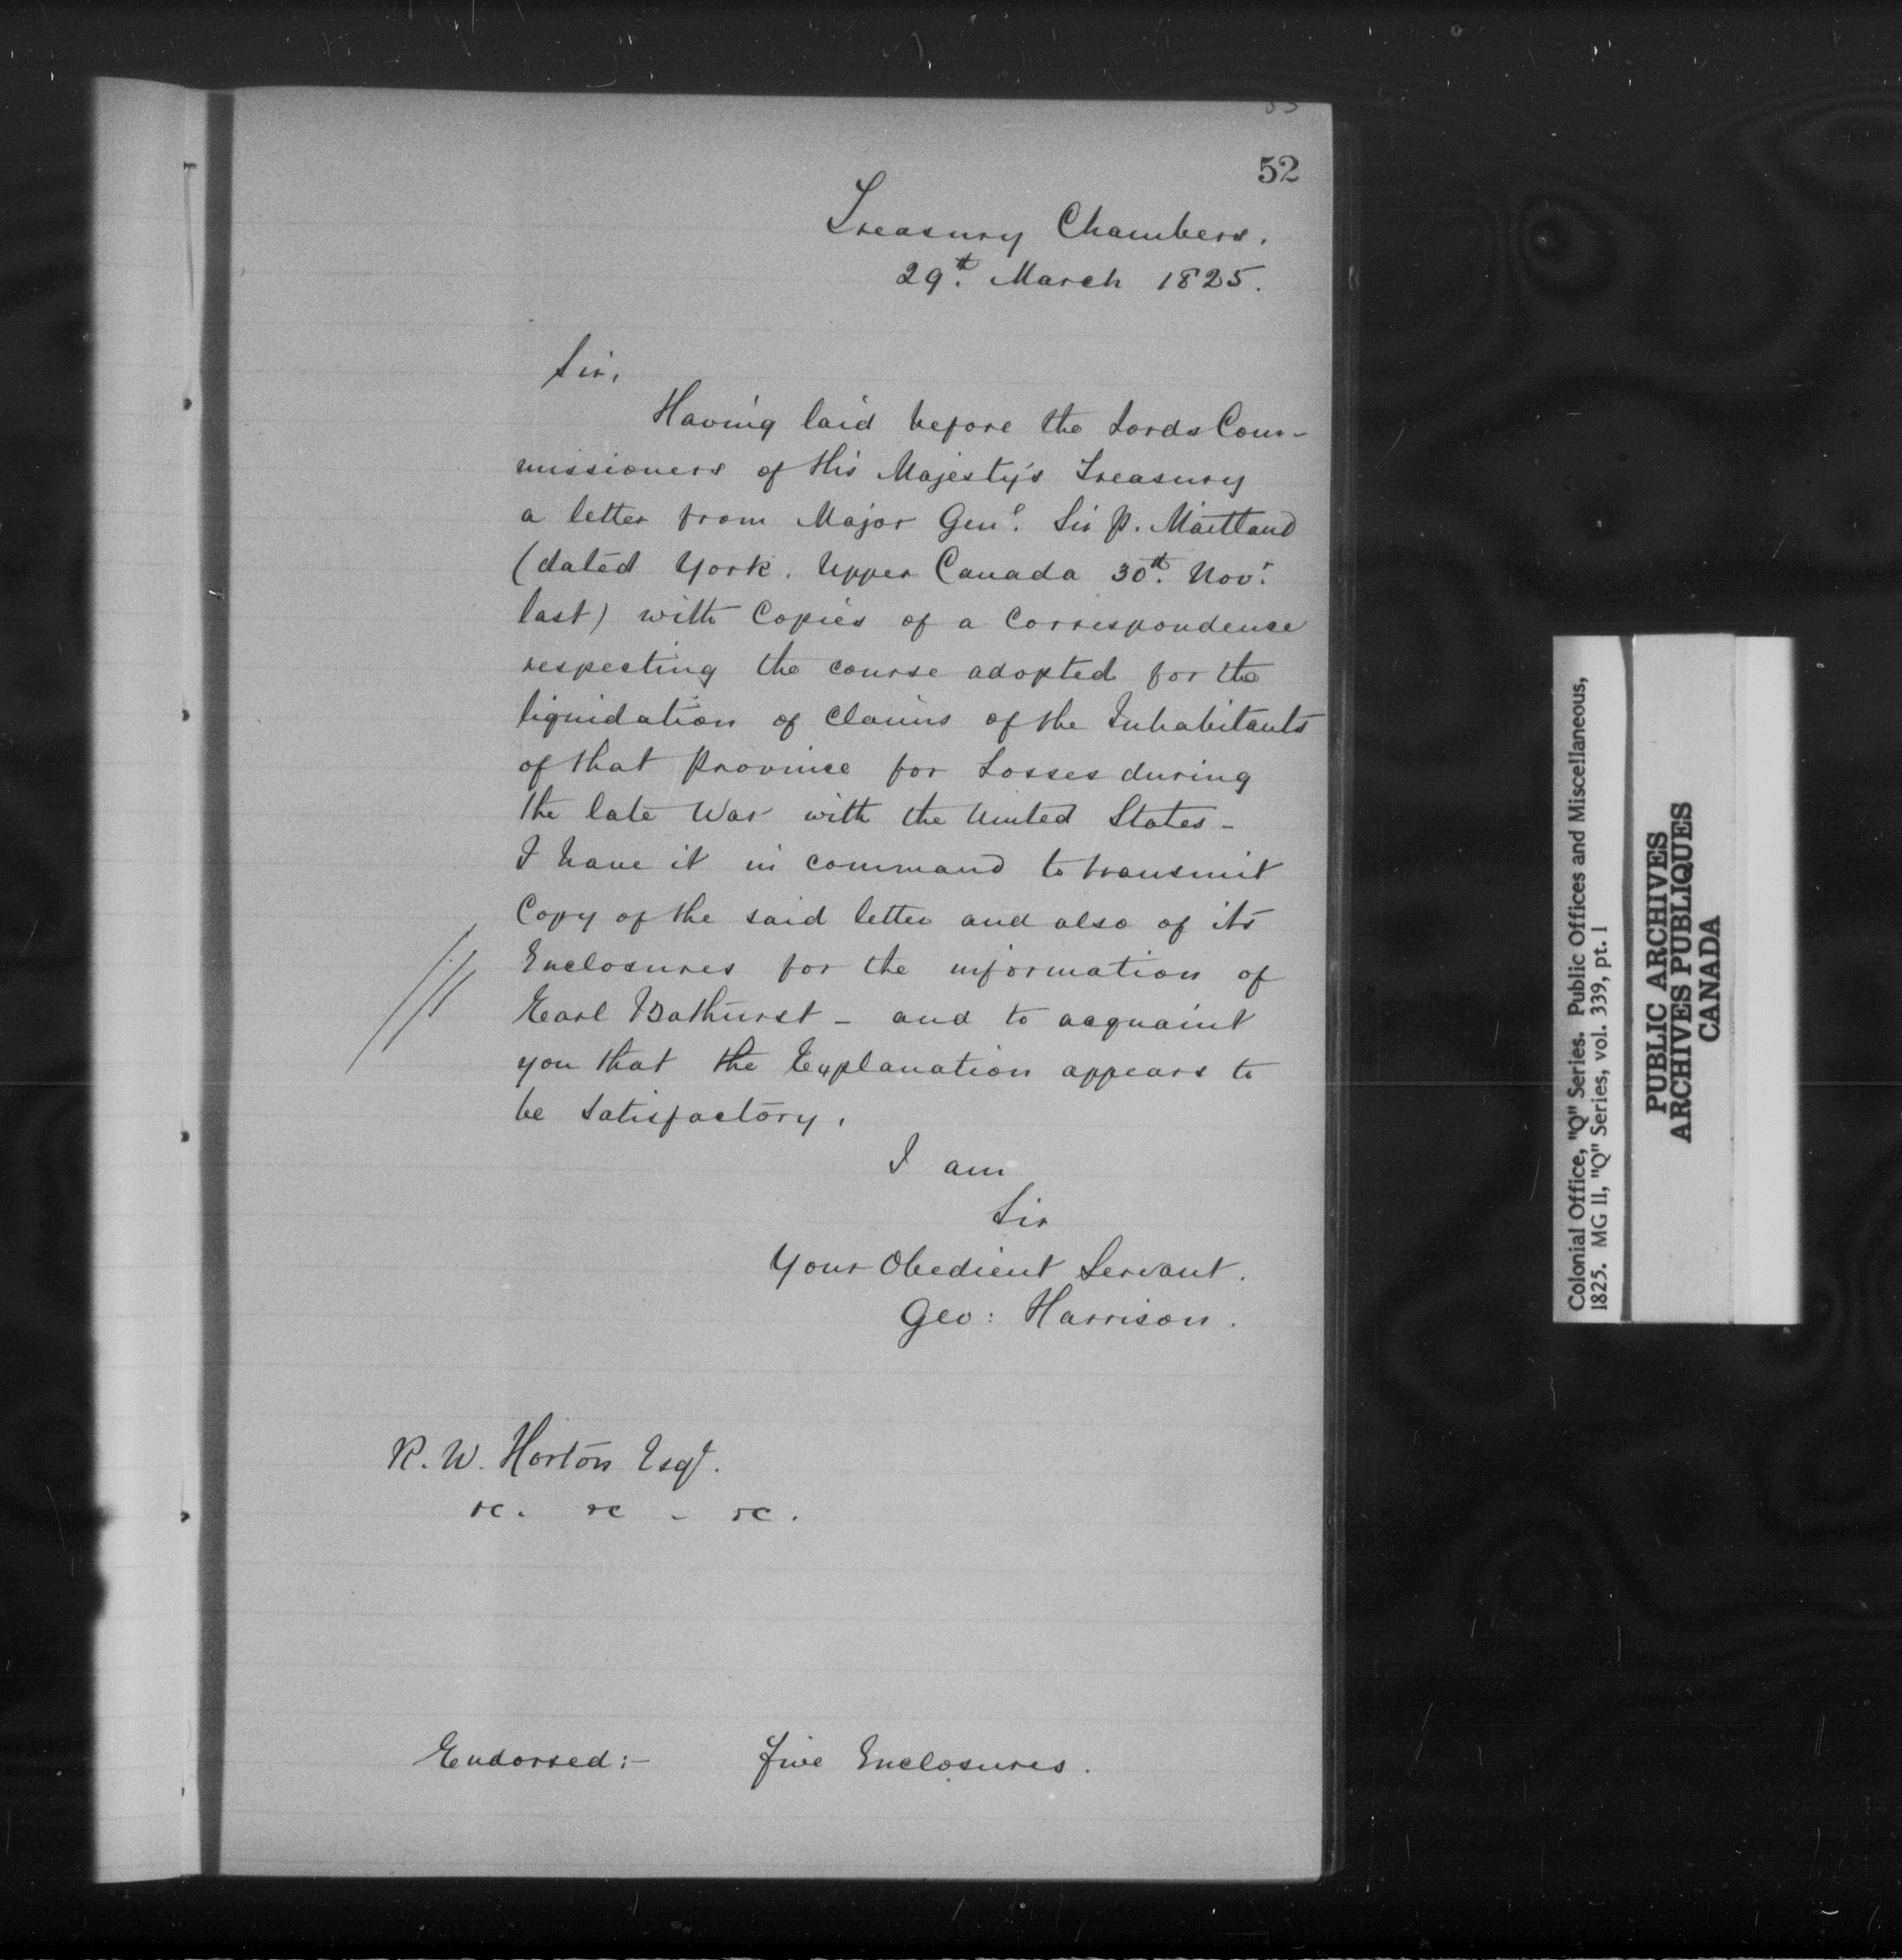 52
Treasury Chambers.
29th. March 1825.
Sir,
Having laid before the Lords Com-
missioners of His Majesty's Treasury
a letter from Major Genl. Sir P. Maitland
(dated York. Upper Canada 30th. Novr.
last) with Copies of a Correspondence
respecting the course adopted for the
liquidation of Claims of the Inhabitants
of that Province for Losses during
the late War with the United States -
I have it in command to transmit
Copy of the said letter and also of its
Enclosures for the information of
Earl Bathurst - and to acquaint
you that the Explanation appears to
be satisfactory.
I am
Sir
Your Obedient Servant.
Geo: Harrison.
R. W. Horton Esqr.
&c. &c - &c.
Endorsed:- Five Enclosures.
Colonial Office, "Q" Series. Public Offices and Miscellaneous,
1825. MG 11, "Q" Series, vol. 339, pt. 1
PUBLIC ARCHIVES
ARCHIVES PUBLIQUES
CANADA